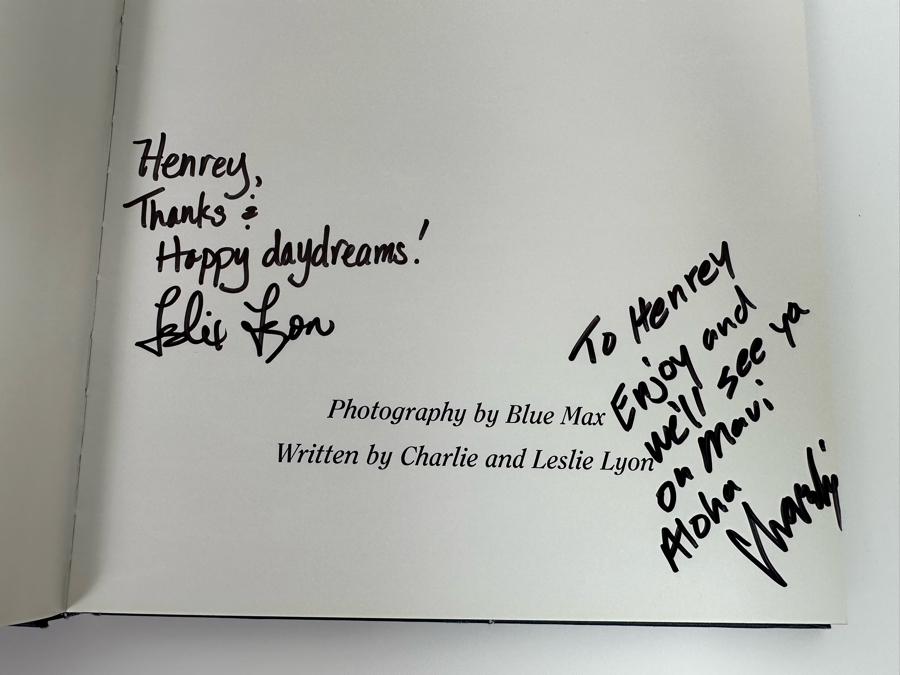 Henrey,
Thanks &
Happy daydreams!
Leslie Lyon
Photography by Blue Max
Written by Charlie and Leslie Lyon
To Henrey
Enjoy and
we'll see ya
on Maui
Aloha
Charlie